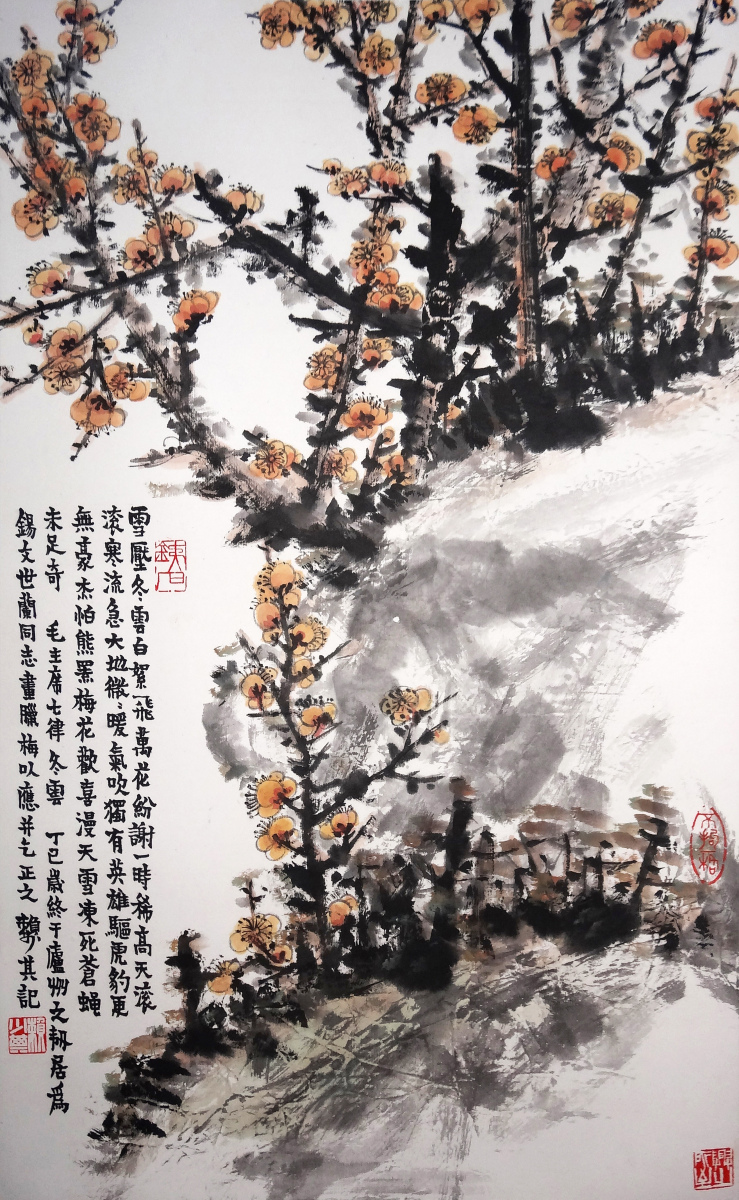 雪壓冬雲白絮飛萬花紛謝一時稀高天滾
滾寒流急大地微〻暖氣吹獨有英雄驅虎豹更
無豪杰怕熊羆梅花歡喜漫天雪凍死蒼蝇
未足奇 毛主席七律冬雲 丁巳歲終于廬州之 居爲
錫文世蘭同志畫臘梅以應并乞正之 賴少其記